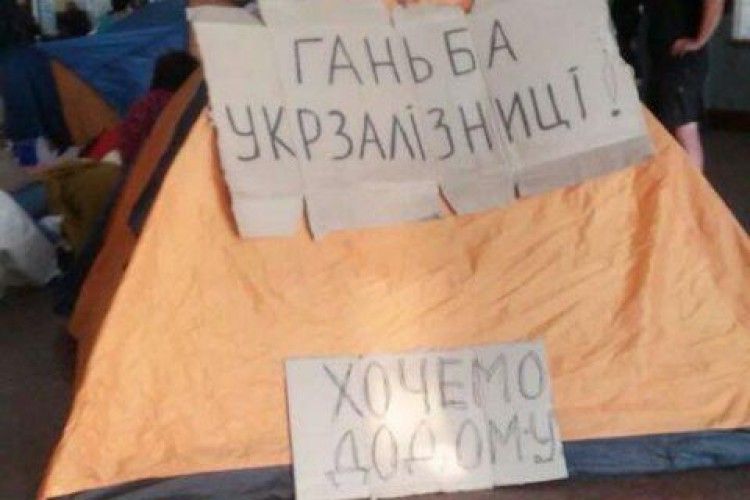 ГАНЬБА
УКРЗАЛІЗНИЦІ!
ХОЧЕМО
ДОДОМУ